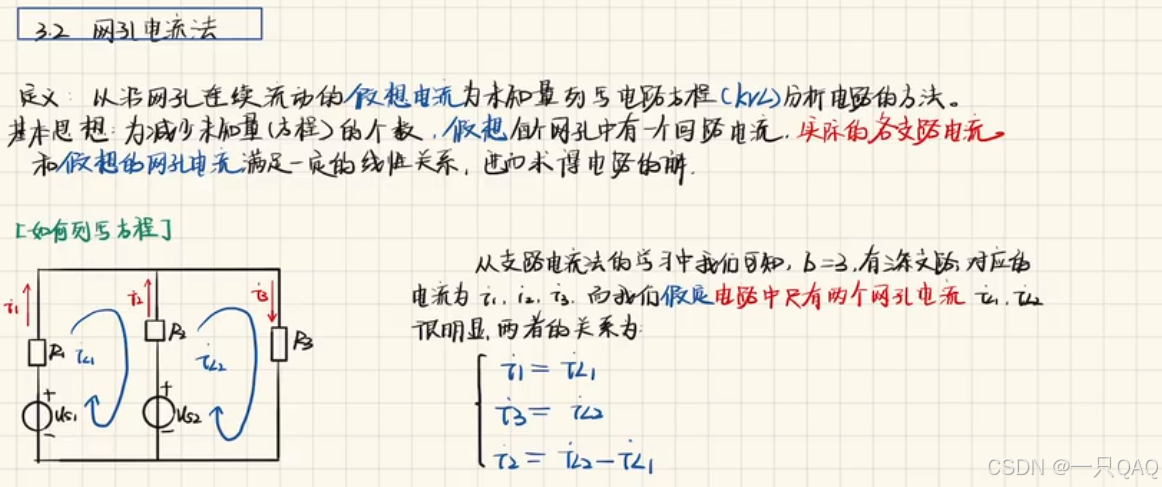 3.2 网孔电流法
定义：以沿网孔连续流动的假想电流为未知量列写电路方程(KVL)分析电路的方法。
基本思想：为减少未知量(方程)的个数，假想每个网孔中有一个回路电流，实际的各支路电流
和假想的网孔电流满足一定的线性关系，进而求得电路的解.
[如何列写方程]
从支路电流法的学习中我们可知，b=3，有三条支路，对应的
电流为 i1, i2, i3, 而我们假定电路中只有两个网孔电流 iL1, iL2
很明显，两者的关系为:
i1 = iL1
i3 = iL2
i2 = iL2-iL1
i1
i2
i3
R1
iL1
R2
iL2
R3
+
US1
-
+
US2
-
CSDN @一只QAQ